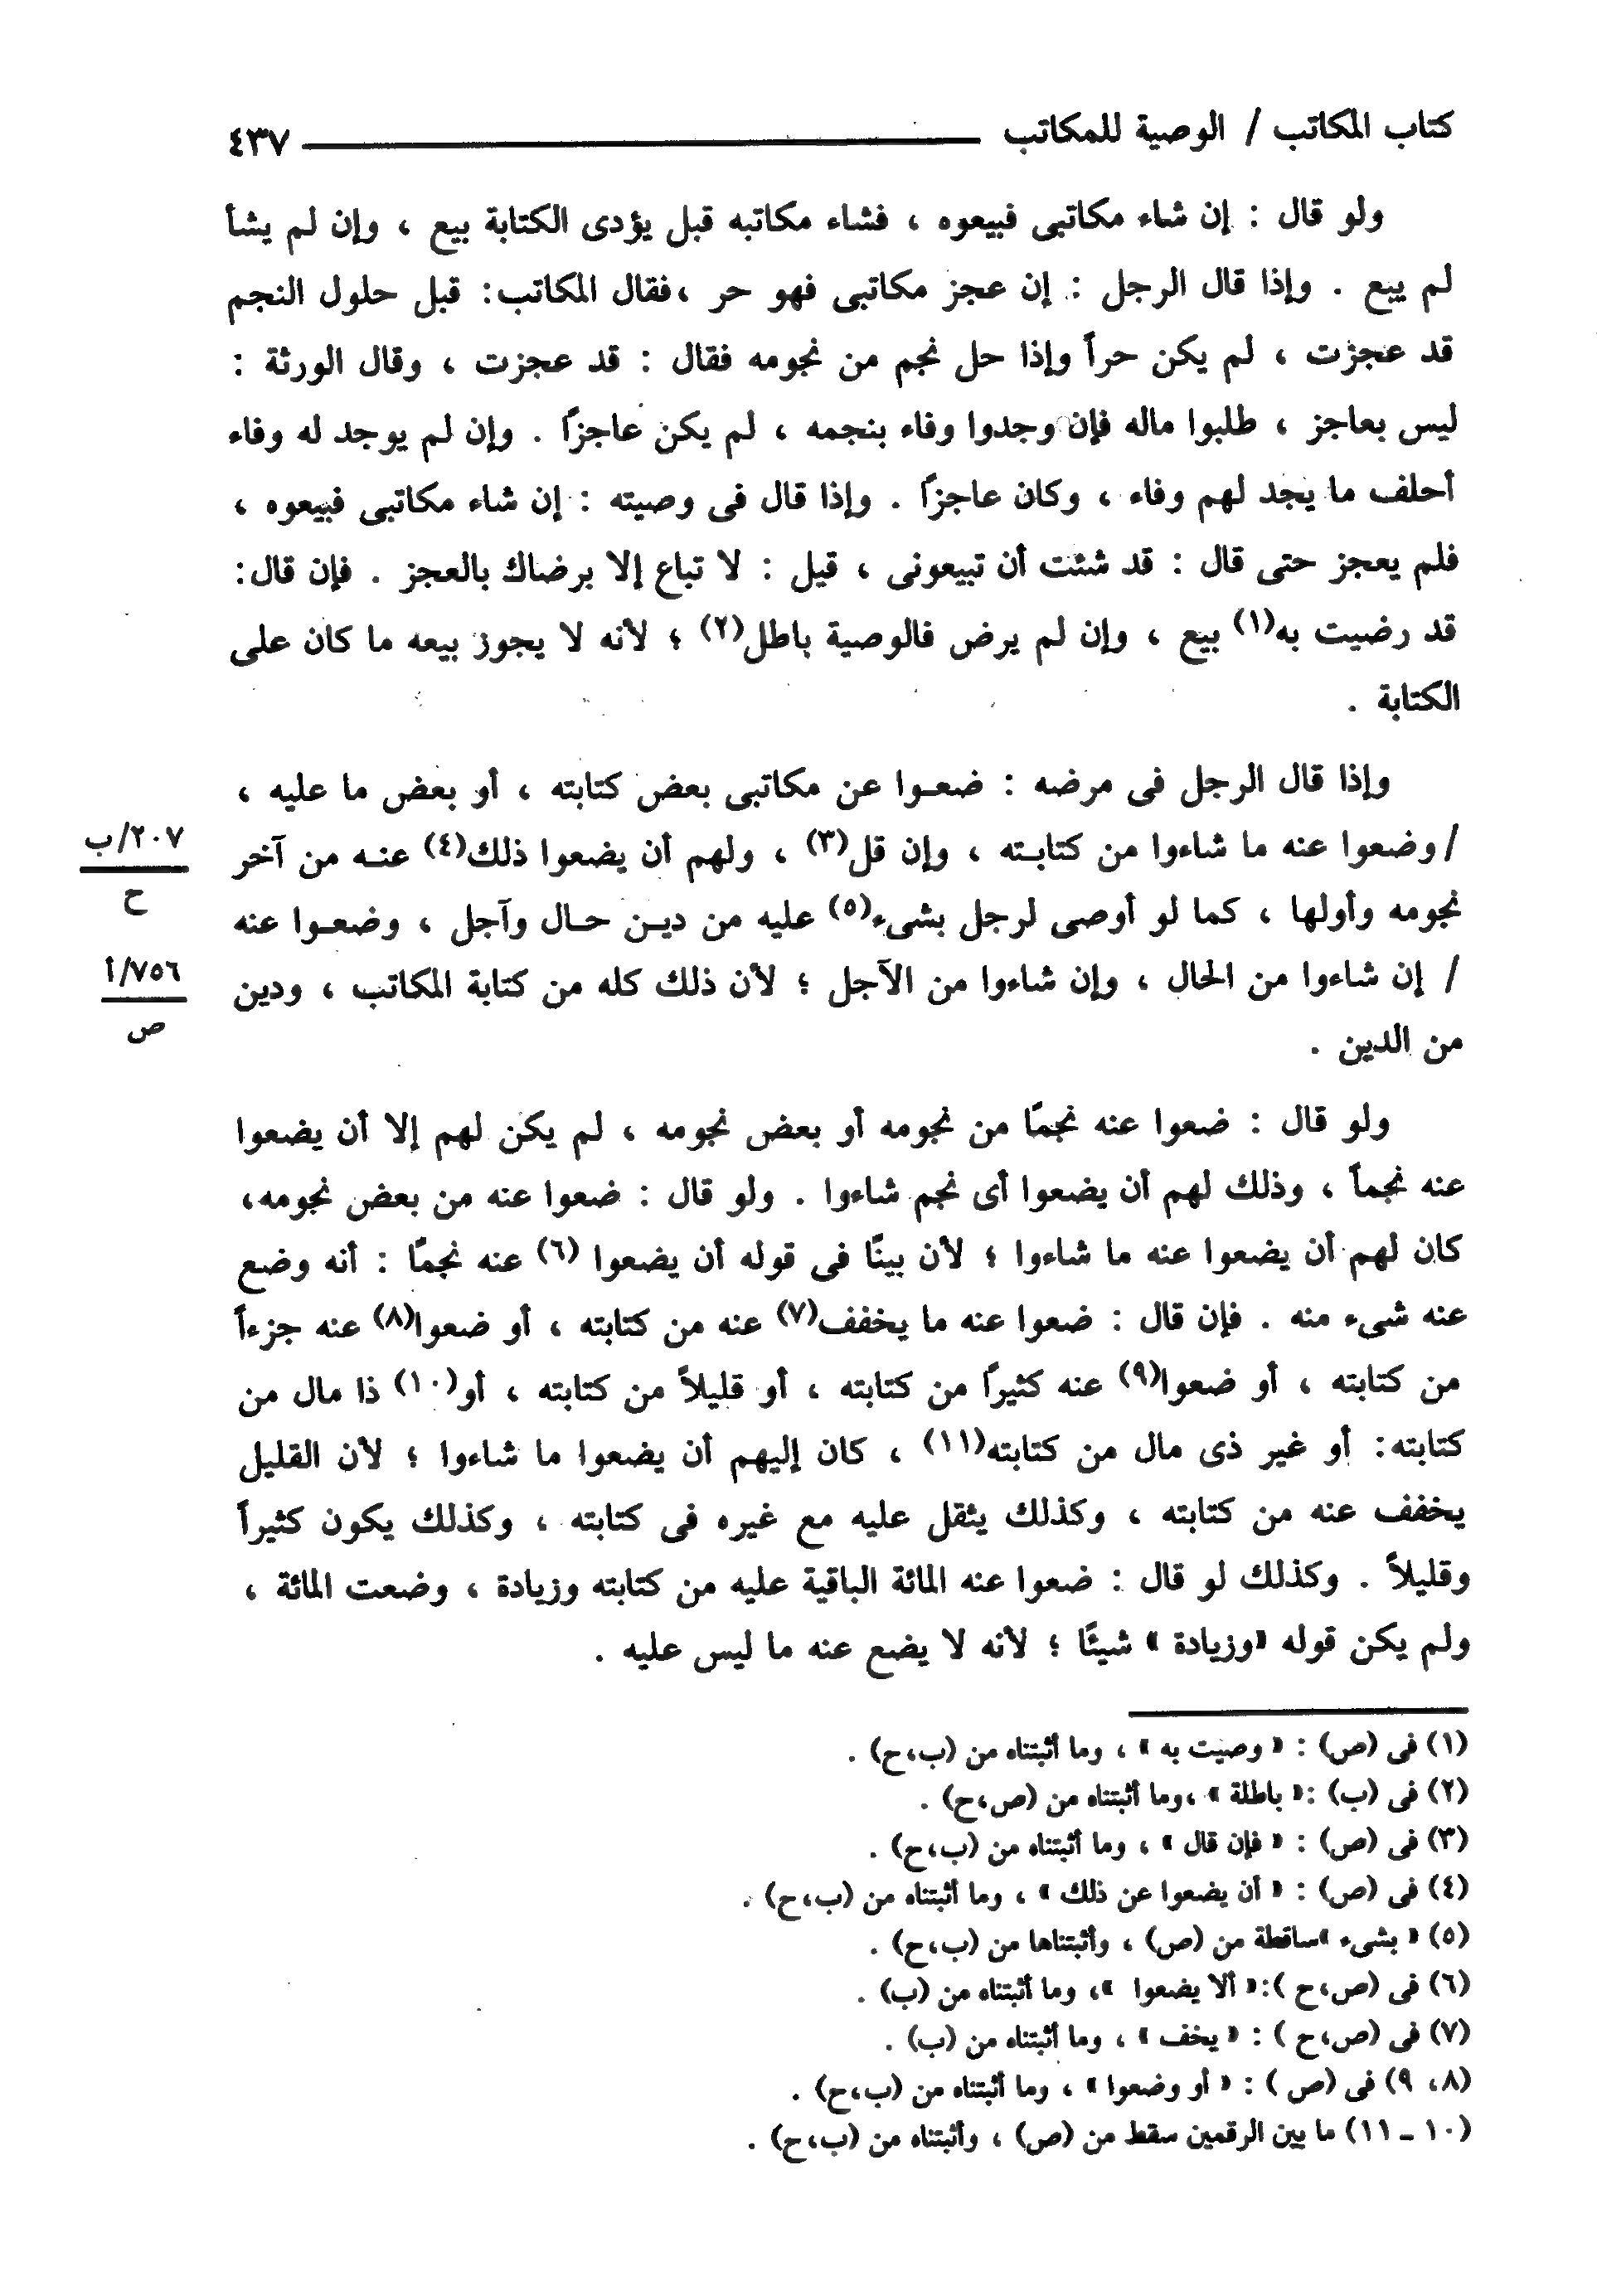 كتاب المكاتب / الوصية للمكاتب ٤٣٧
ولو قال : إن شاء مكاتبى فبيعوه ، فشاء مكاتبه قبل يؤدى الكتابة بيع ، وإن لم يشأ
لم يبع . وإذا قال الرجل : إن عجز مكاتبى فهو حر ،فقال المكاتب: قبل حلول النجم
قد عجزت ، لم يكن حراً وإذا حل نجم من نجومه فقال : قد عجزت ، وقال الورثة :
ليس بعاجز ، طلبوا ماله فإن وجدوا وفاء بنجمه ، لم يكن عاجزًا . وإن لم يوجد له وفاء
أحلف ما يجد لهم وفاء ، وكان عاجزًا . وإذا قال فى وصيته : إن شاء مكاتبى فبيعوه ،
فلم يعجز حتى قال : قد شئت أن تبيعونى ، قيل : لا تباع إلا برضاك بالعجز . فإن قال:
قد رضيت به(١) بيع ، وإن لم يرض فالوصية باطل(٢) ؛ لأنه لا يجوز بيعه ما كان على
الكتابة .
وإذا قال الرجل فى مرضه : ضعوا عن مكاتبى بعض كتابته ، أو بعض ما عليه ،
/وضعوا عنه ما شاءوا من كتابته ، وإن قل(٣) ، ولهم أن يضعوا ذلك(٤) عنه من آخر
٢٠٧/ب
ح
نجومه وأولها ، كما لو أوصى لرجل بشىء(٥) عليه من دين حال وآجل ، وضعوا عنه
/ إن شاءوا من الحال ، وإن شاءوا من الآجل ؛ لأن ذلك كله من كتابة المكاتب ، ودين
٧٥٦/أ
ص
من الدين .
ولو قال : ضعوا عنه نجمًا من نجومه أو بعض نجومه ، لم يكن لهم إلا أن يضعوا
عنه نجماً ، وذلك لهم أن يضعوا أى نجم شاءوا . ولو قال : ضعوا عنه من بعض نجومه،
كان لهم أن يضعوا عنه ما شاءوا ؛ لأن بينًا فى قوله أن يضعوا (٦) عنه نجمًا : أنه وضع
عنه شىء منه . فإن قال : ضعوا عنه ما يخفف(٧) عنه من كتابته ، أو ضعوا(٨) عنه جزءاً
من كتابته ، أو ضعوا(٩) عنه كثيرًا من كتابته ، أو قليلاً من كتابته ، أو(١٠) ذا مال من
كتابته: أو غير ذى مال من كتابته(١١) ، كان إليهم أن يضعوا ما شاءوا ؛ لأن القليل
يخفف عنه من كتابته ، وكذلك يثقل عليه مع غيره فى كتابته ، وكذلك يكون كثيراً
وقليلاً . وكذلك لو قال : ضعوا عنه المائة الباقية عليه من كتابته وزيادة ، وضعت المائة ،
ولم يكن قوله «وزيادة » شيئًا ؛ لأنه لا يضع عنه ما ليس عليه .
(١) فى (ص) : « وصيت به » ، وما أثبتناه من (ب،ح) .
(٢) فى (ب) :« باطلة » ،وما أثبتناه من (ص،ح) .
(٣) فى (ص) : « فإن قال » ، وما أثبتناه من (ب،ح) .
(٤) فى (ص) : « أن يضعوا عن ذلك » ، وما أثبتناه من (ب،ح) .
(٥) « بشىء »ساقطة من (ص) ، وأثبتناها من (ب،ح) .
(٦) فى (ص،ح ):« ألا يضعوا »، وما أثبتناه من (ب) .
(٧) فى (ص،ح ) : « يخف » ، وما أثبتناه من (ب) .
(٨، ٩) فى (ص ) : « أو وضعوا » ، وما أثبتناه من (ب،ح) .
(١٠ ـ ١١) ما بين الرقمين سقط من (ص) ، وأثبتناه من (ب،ح) .